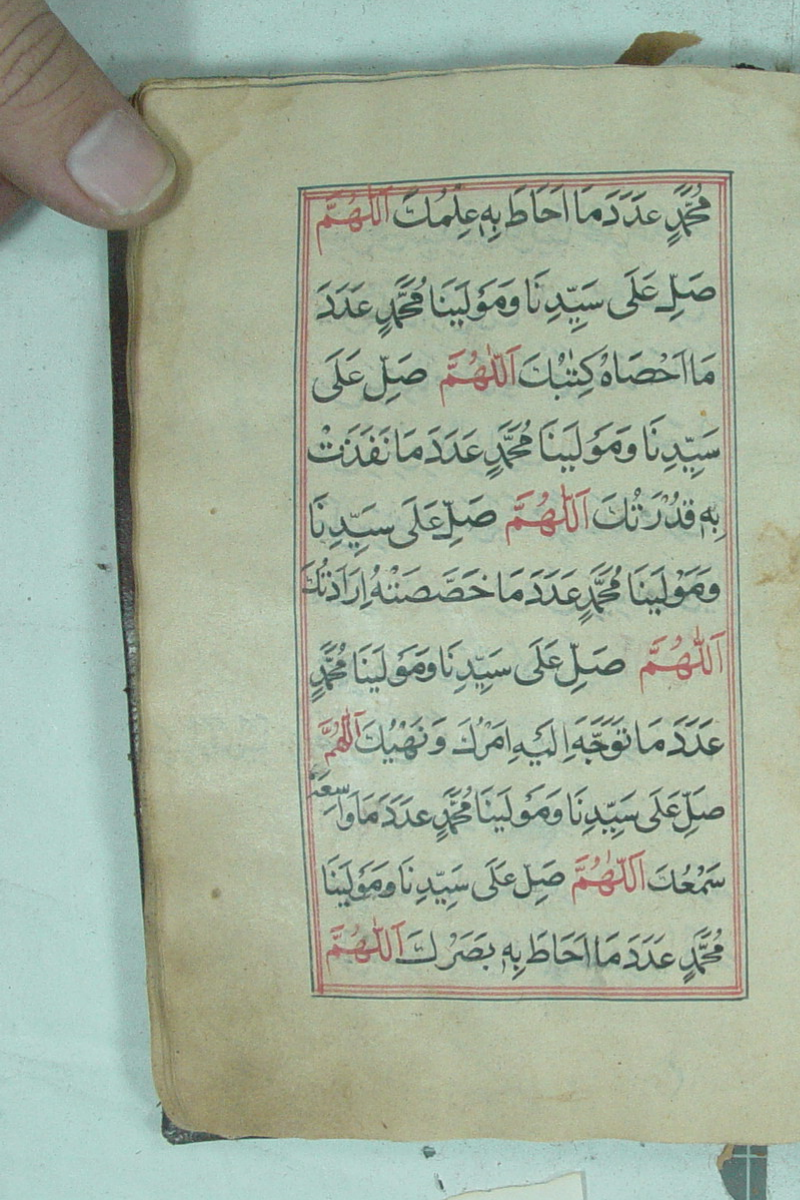 مُحَمَّدٍ عَدَدَ مَا اَحَاطَ بِهٖ عِلْمُكَ اَللّٰهُمَّ
صَلِّ عَلَى سَيِّدِنَا وَمَوْلَينَا مُحَمَّدٍ عَدَدَ
مَا اَحْصَاهُ كِتٰبُكَ اَللّٰهُمَّ صَلِّ عَلَى
سَيِّدِنَا وَمَوْلَينَا مُحَمَّدٍ عَدَدَ مَا نَفَذَتْ
بِهٖ قُدْرَتُكَ اَللّٰهُمَّ صَلِّ عَلَى سَيِّدِنَا
وَمَوْلَينَا مُحَمَّدٍ عَدَدَ مَا خَصَّصَتْهُ اِرَادَتُكَ
اَللّٰهُمَّ صَلِّ عَلَى سَيِّدِنَا وَمَوْلَينَا مُحَمَّدٍ
عَدَدَ مَا تَوَجَّهَ اِلَيْهِ اَمْرُكَ وَنَهْيُكَ اَللّٰهُمَّ
صَلِّ عَلَى سَيِّدِنَا وَمَوْلَينَا مُحَمَّدٍ عَدَدَ مَا
سَمْعُكَ اَللّٰهُمَّ صَلِّ عَلَى سَيِّدِنَا وَمَوْلَينَا
مُحَمَّدٍ عَدَدَ مَا اَحَاطَ بِهٖ بَصَرُكَ اَللّٰهُمَّ